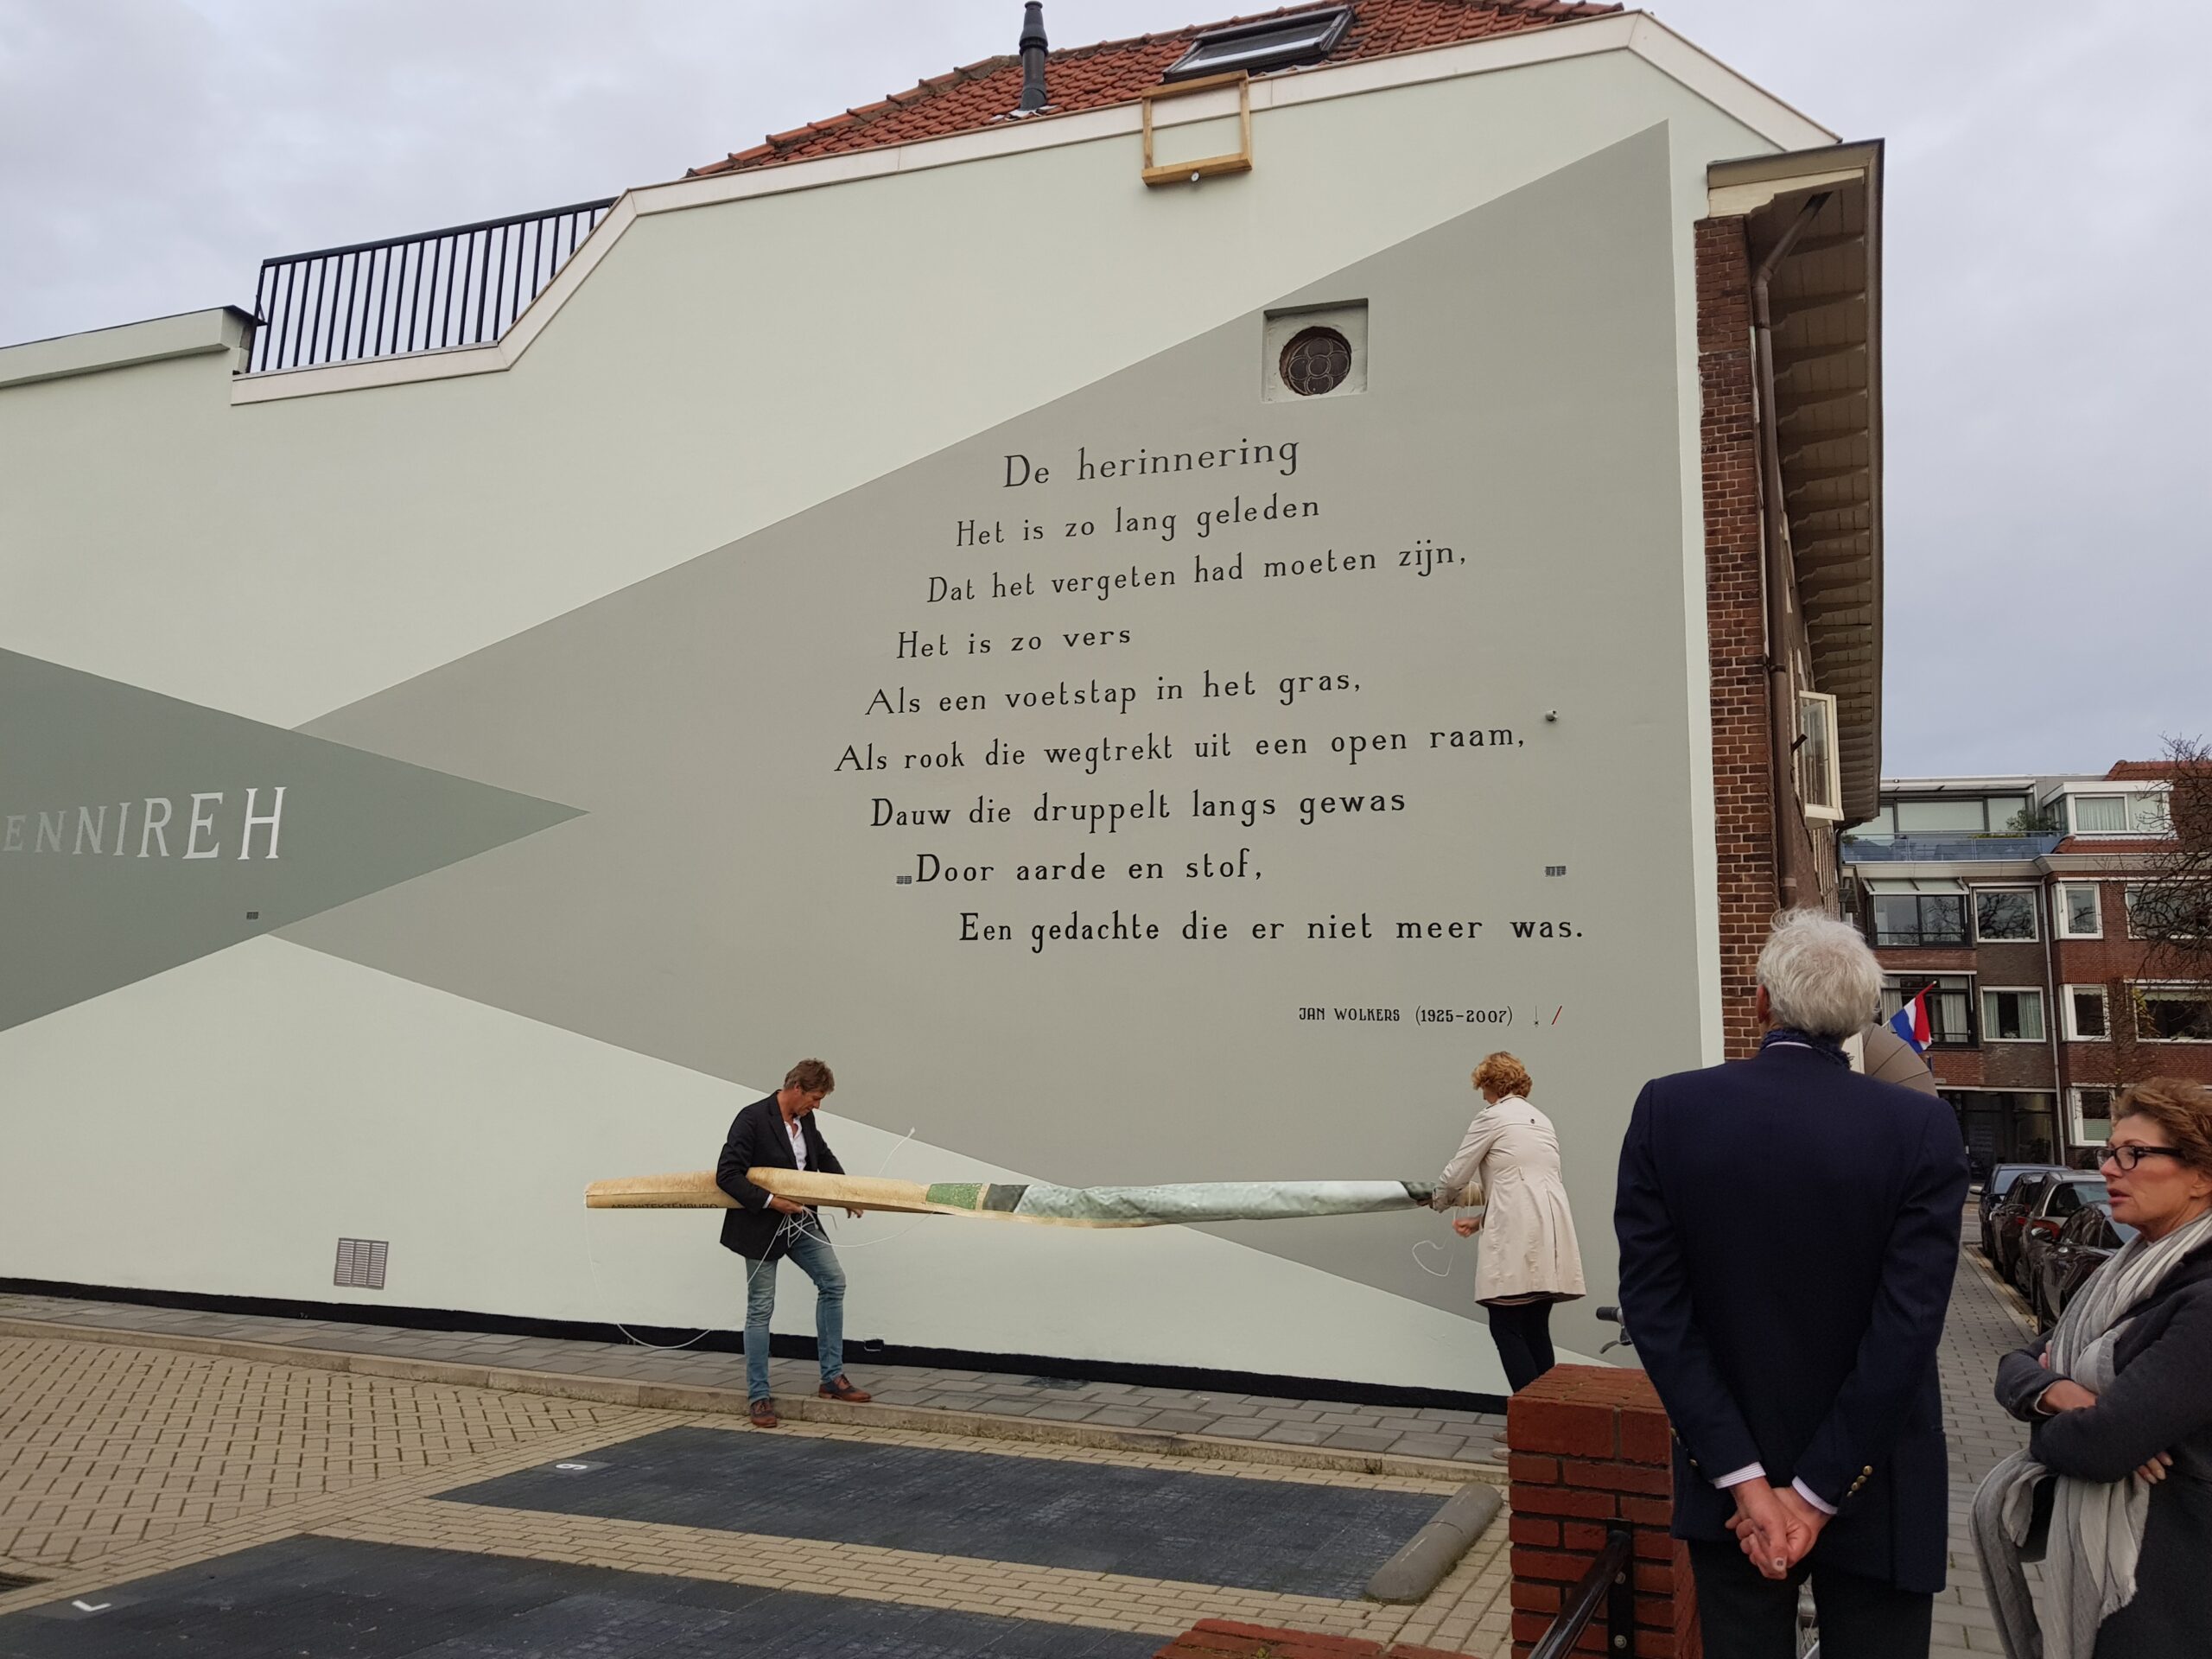 De herinnering
Het is zo lang geleden
Dat het vergeten had moeten zijn,
Het is zo vers
Als een voetstap in het gras,
Als rook die wegtrekt uit een open raam,
Dauw die druppelt langs gewas
Door aarde en stof,
Een gedachte die er niet meer was.
JAN WOLKERS (1925-2007)
ENNIREH